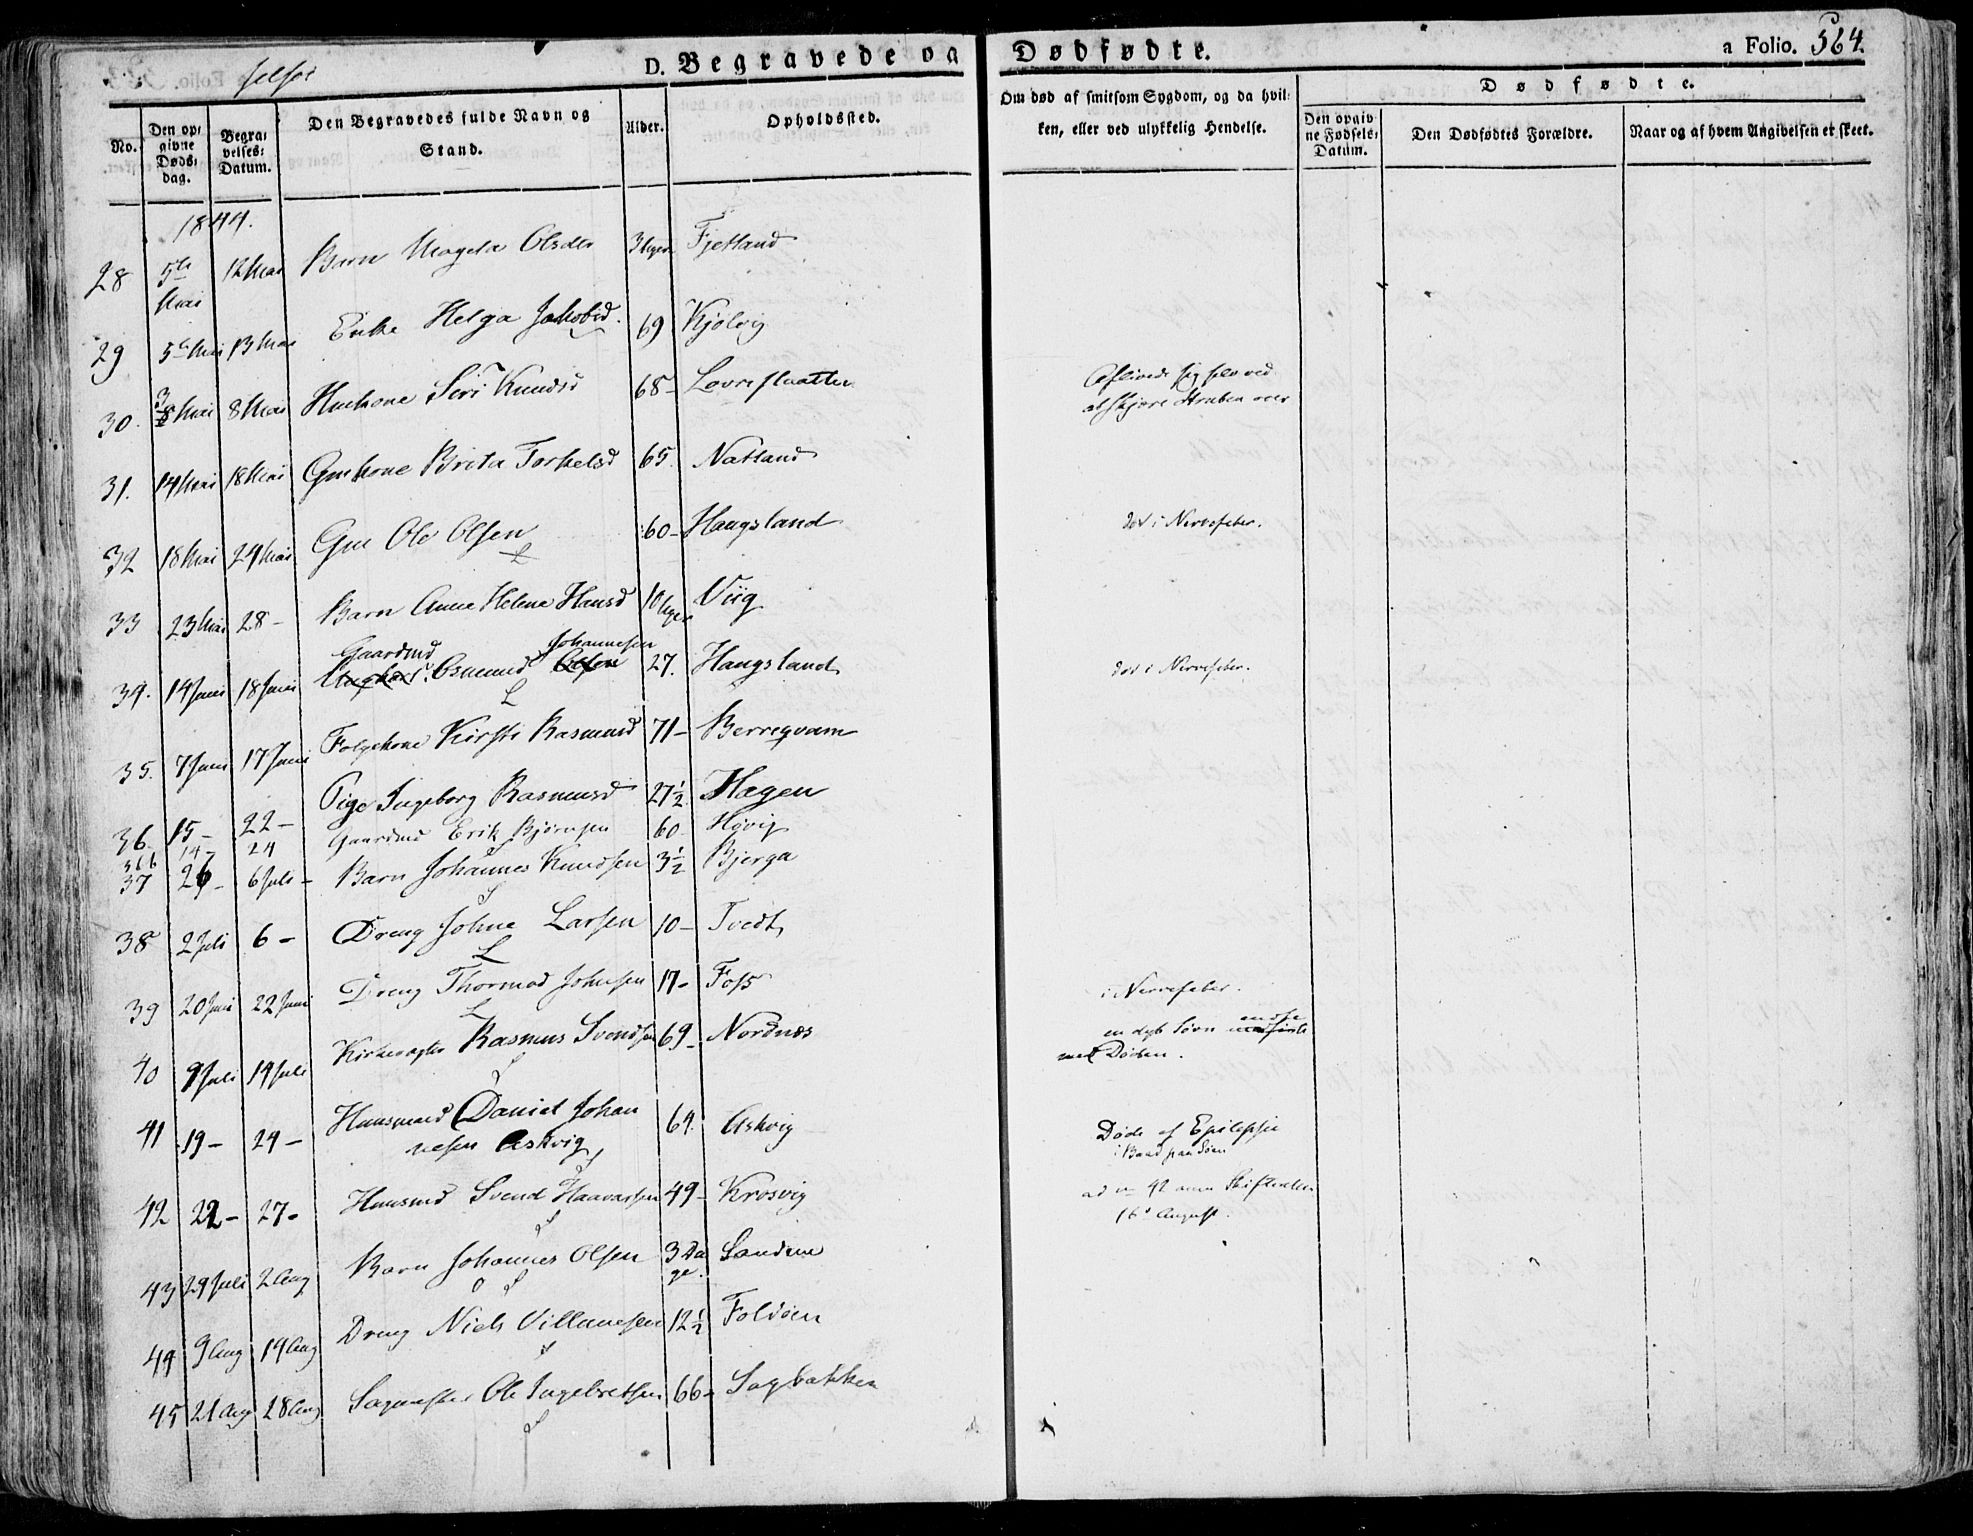 Jelsøe
D. Begravede og Dødfødte.
a Folio. 564.
No.
Den op:
givne
Døds:
dag.
Begra:
velses:
Datum.
Den Begravedes fulde Navn og
Stand.
Alder.
Opholdssted.
Om død af smitsom Sygdom, og da hvil:
ken, eller ved ulykkelig Hendelse.
Dødfødte.
Den opgiv:
ne Fødsels:
Datum.
Den Dødfødtes Forældre.
Naar og af hvem Angivelsen er skeet.
1844.
28 5te Mai 12 Mai Barn Magela Olsdtr 3 Uger Fjetland
29 5te Mai 13 Mai Enke Helga Jakobsd. 69 Kjölvig
30. 3 Mai 8 Mai Huskone Siri Knudsd 68- Lovreslaatten Aflivede sig selv ved
at skjære Struben over
31. 14 Mai 18 Mai Gmkone Brita Torkelsd 65. Natland
32 18 Mai 24 Mai Gm Ole Olsen 60- Haugsland død i Nervefeber.
33 23 Mai 28- Barn Anne Helene Hansd 10 Uger Viig
Gaardmd Johannesen
34. 14 Juni 18 Juni Ungkarl. Osmund Olsen 27. Haugsland død i Nervefeber.
35. 7 Juni 17 Juni Folgekone Kirsti Rasmusd 71- Berreqvam
36. 15- 22- Pige Ingeborg Rasmusd 27½ Hagen
36b 14- 24 Gaardmd Erik Bjørnsen 60 Høvig
37 26- 6 Juli- Barn Johannes Knudsen 3½ Bjerga
38 2 Juli 6- Dreng Johne Larsen 10- Tvedt
39 20 Juni 22 Juni Dreng Thormod Johnsen 17- Foss i Nervefeber.
40 9 Juli 14 Juli Kirkevagter Rasmus Svendsen 69- Nordnæs en dyb Søvn endte
med Døden.
41 19- 24- Huusmand Daniel Johan
nesen Askvig 64. Askvig Døde af Epilepsie
i Baad paa Søen
42 22- 27- Huusmd Svend Haavarsen 49- Krosvig ad no 42 anm Skifteretten
16d August.
43 29 Juli 2 Aug Barn Johannes Olsen 3 Da
ge. Sandene
44 9 Aug 14 Aug Dreng Niels Villumsen 12½ Foldöen
45 21 Aug 28 Aug Sagmester Ole Ingebretsen 66- Sagbakken